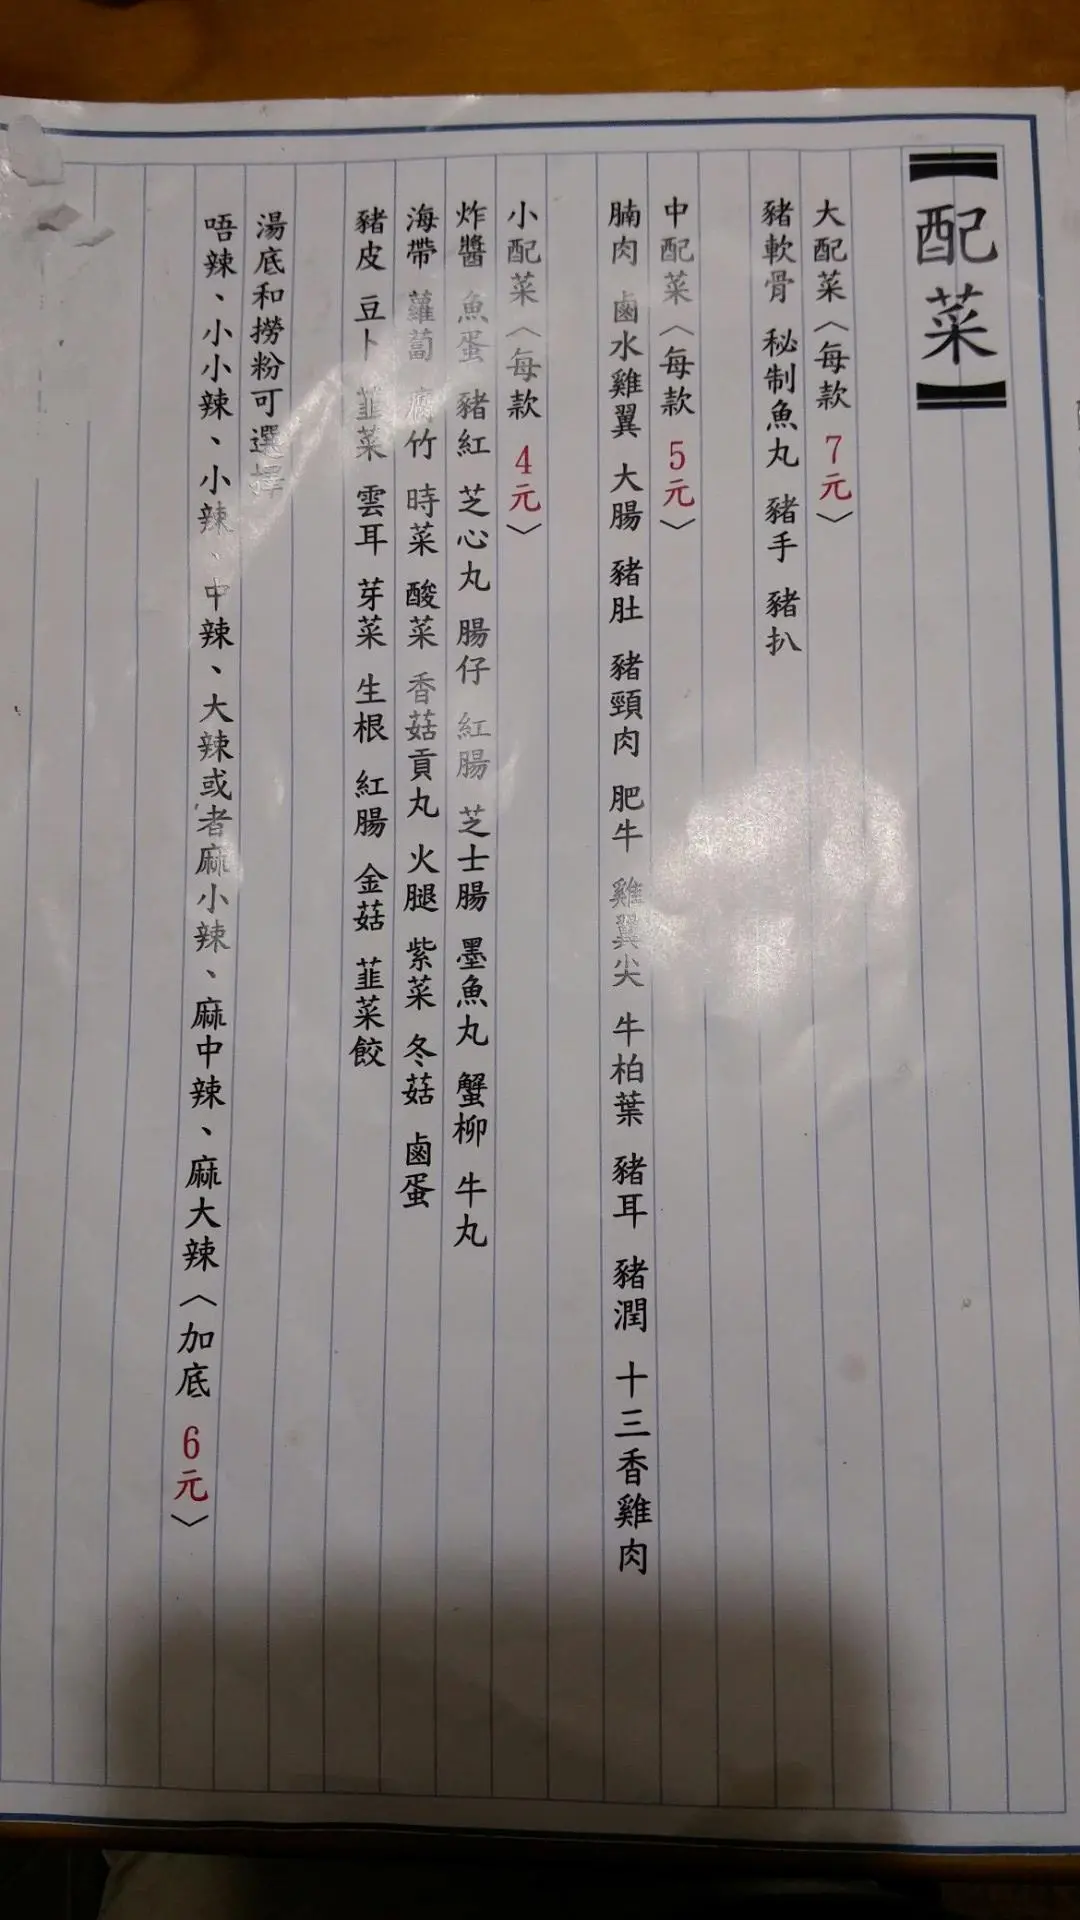 【配菜】
大配菜〈每款 7元〉
豬軟骨 秘制魚丸 豬手 豬扒
中配菜〈每款 5元〉
腩肉 鹵水雞翼 大腸 豬肚 豬頸肉 肥牛 雞翼尖 牛柏葉 豬耳 豬潤 十三香雞肉
小配菜〈每款 4元〉
炸醬 魚蛋 豬紅 芝心丸 腸仔 紅腸 芝士腸 墨魚丸 蟹柳 牛丸
海帶 蘿蔔 腐竹 時菜 酸菜 香菇貢丸 火腿 紫菜 冬菇 鹵蛋
豬皮 豆卜 韮菜 雲耳 芽菜 生根 紅腸 金菇 韮菜餃
湯底和撈粉可選擇
唔辣、小小辣、小辣、中辣、大辣或者麻小辣、麻中辣、麻大辣〈加底 6元〉